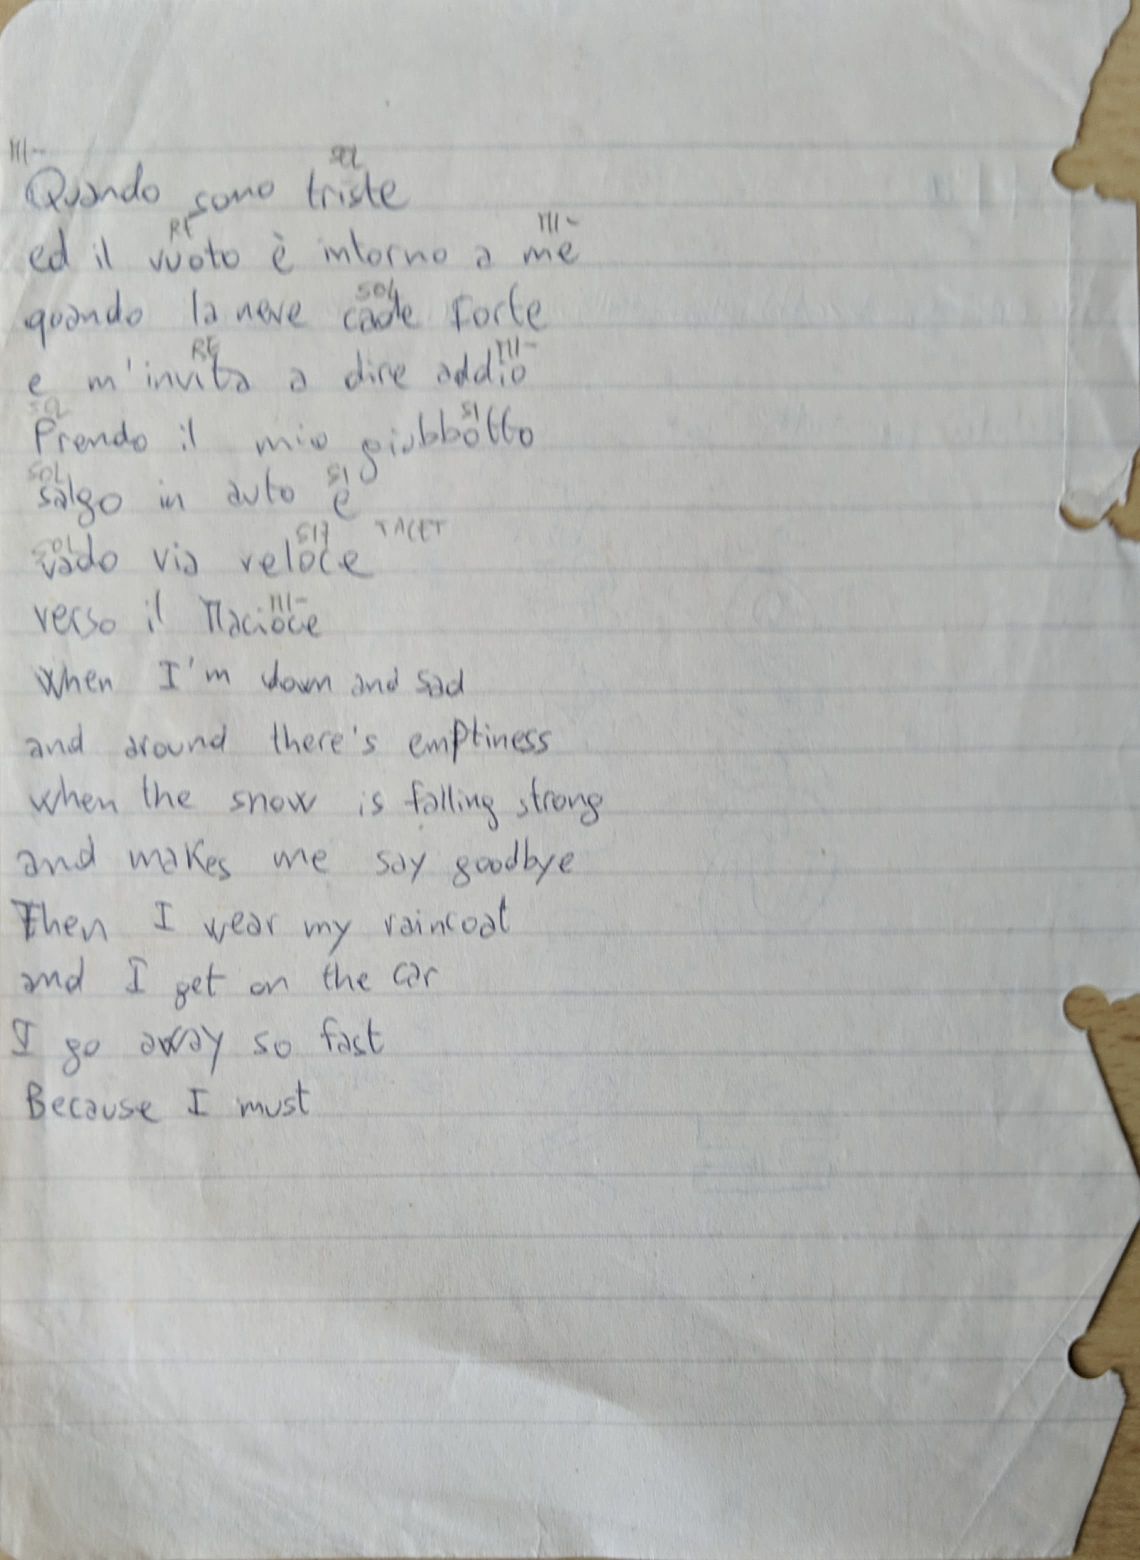 MI- SOL
Quando sono triste
RE MI-
ed il vuoto è intorno a me
SOL
quando la neve cade forte
RE MI-
e m'invita a dire addio
SOL SI
Prendo il mio giubbotto
SOL SI
salgo in auto e
SOL SI7 TACET
vado via veloce
MI-
verso il Macioce
When I'm down and sad
and around there's emptiness
when the snow is falling strong
and makes me say goodbye
Then I wear my raincoat
and I get on the car
I go away so fast
Because I must